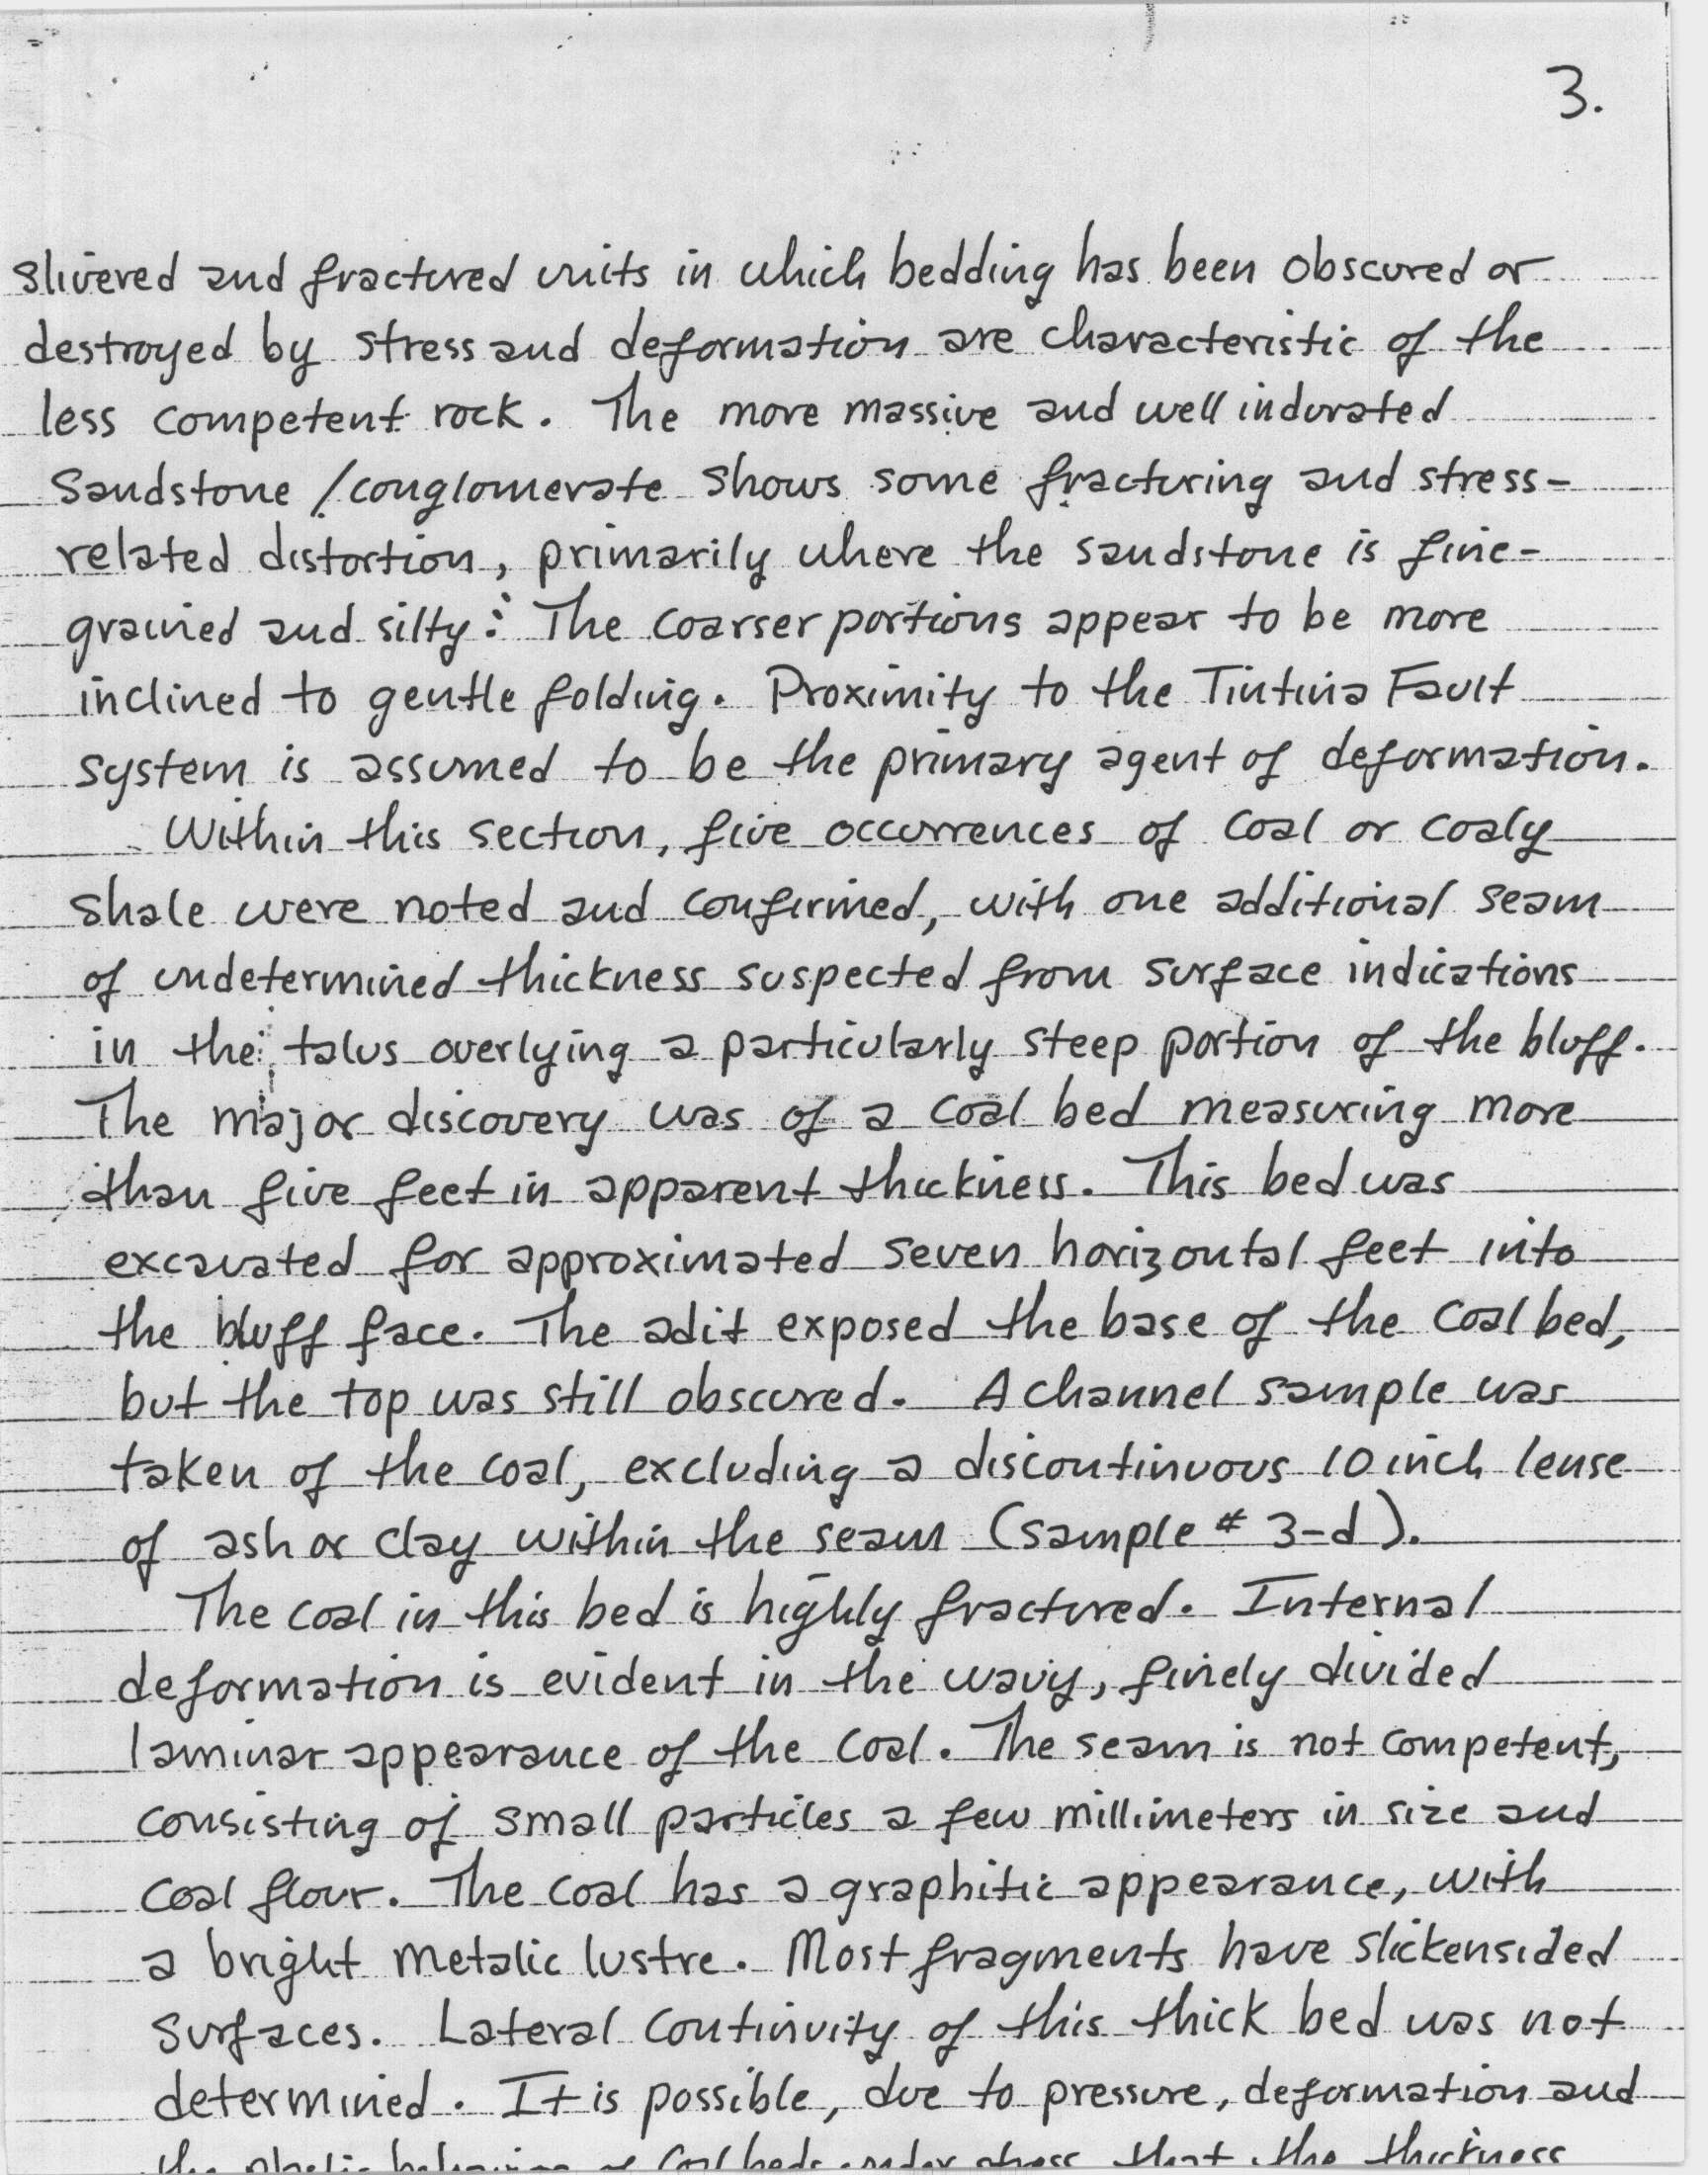 3.
slivered and fractured units in which bedding has been obscured or
destroyed by stress and deformation are characteristic of the
less competent rock. The more massive and well indurated
Sandstone / conglomerate shows some fracturing and stress-
related distortion, primarily where the sandstone is fine-
grained and silty: The coarser portions appear to be more
inclined to gentle folding. Proximity to the Tintina Fault
system is assumed to be the primary agent of deformation.
Within this section, five occurrences of coal or coaly
shale were noted and confirmed, with one additional seam
of undetermined thickness suspected from surface indications
in the talus overlying a particularly steep portion of the bluff.
The major discovery was of a coal bed measuring more
than five feet in apparent thickness. This bed was
excavated for approximated seven horizontal feet into
the bluff face. The adit exposed the base of the coal bed,
but the top was still obscured. A channel sample was
taken of the coal, excluding a discontinuous 10 inch lense
of ash or clay within the seam (sample # 3-d).
The coal in this bed is highly fractured. Internal
deformation is evident in the wavy, finely divided
laminar appearance of the coal. The seam is not competent,
consisting of small particles a few millimeters in size and
coal flour. The coal has a graphitic appearance, with
a bright metalic lustre. Most fragments have slickensided
surfaces. Lateral continuity of this thick bed was not
determined. It is possible, due to pressure, deformation and
the plastic behavior of coal beds under stress that the thickness